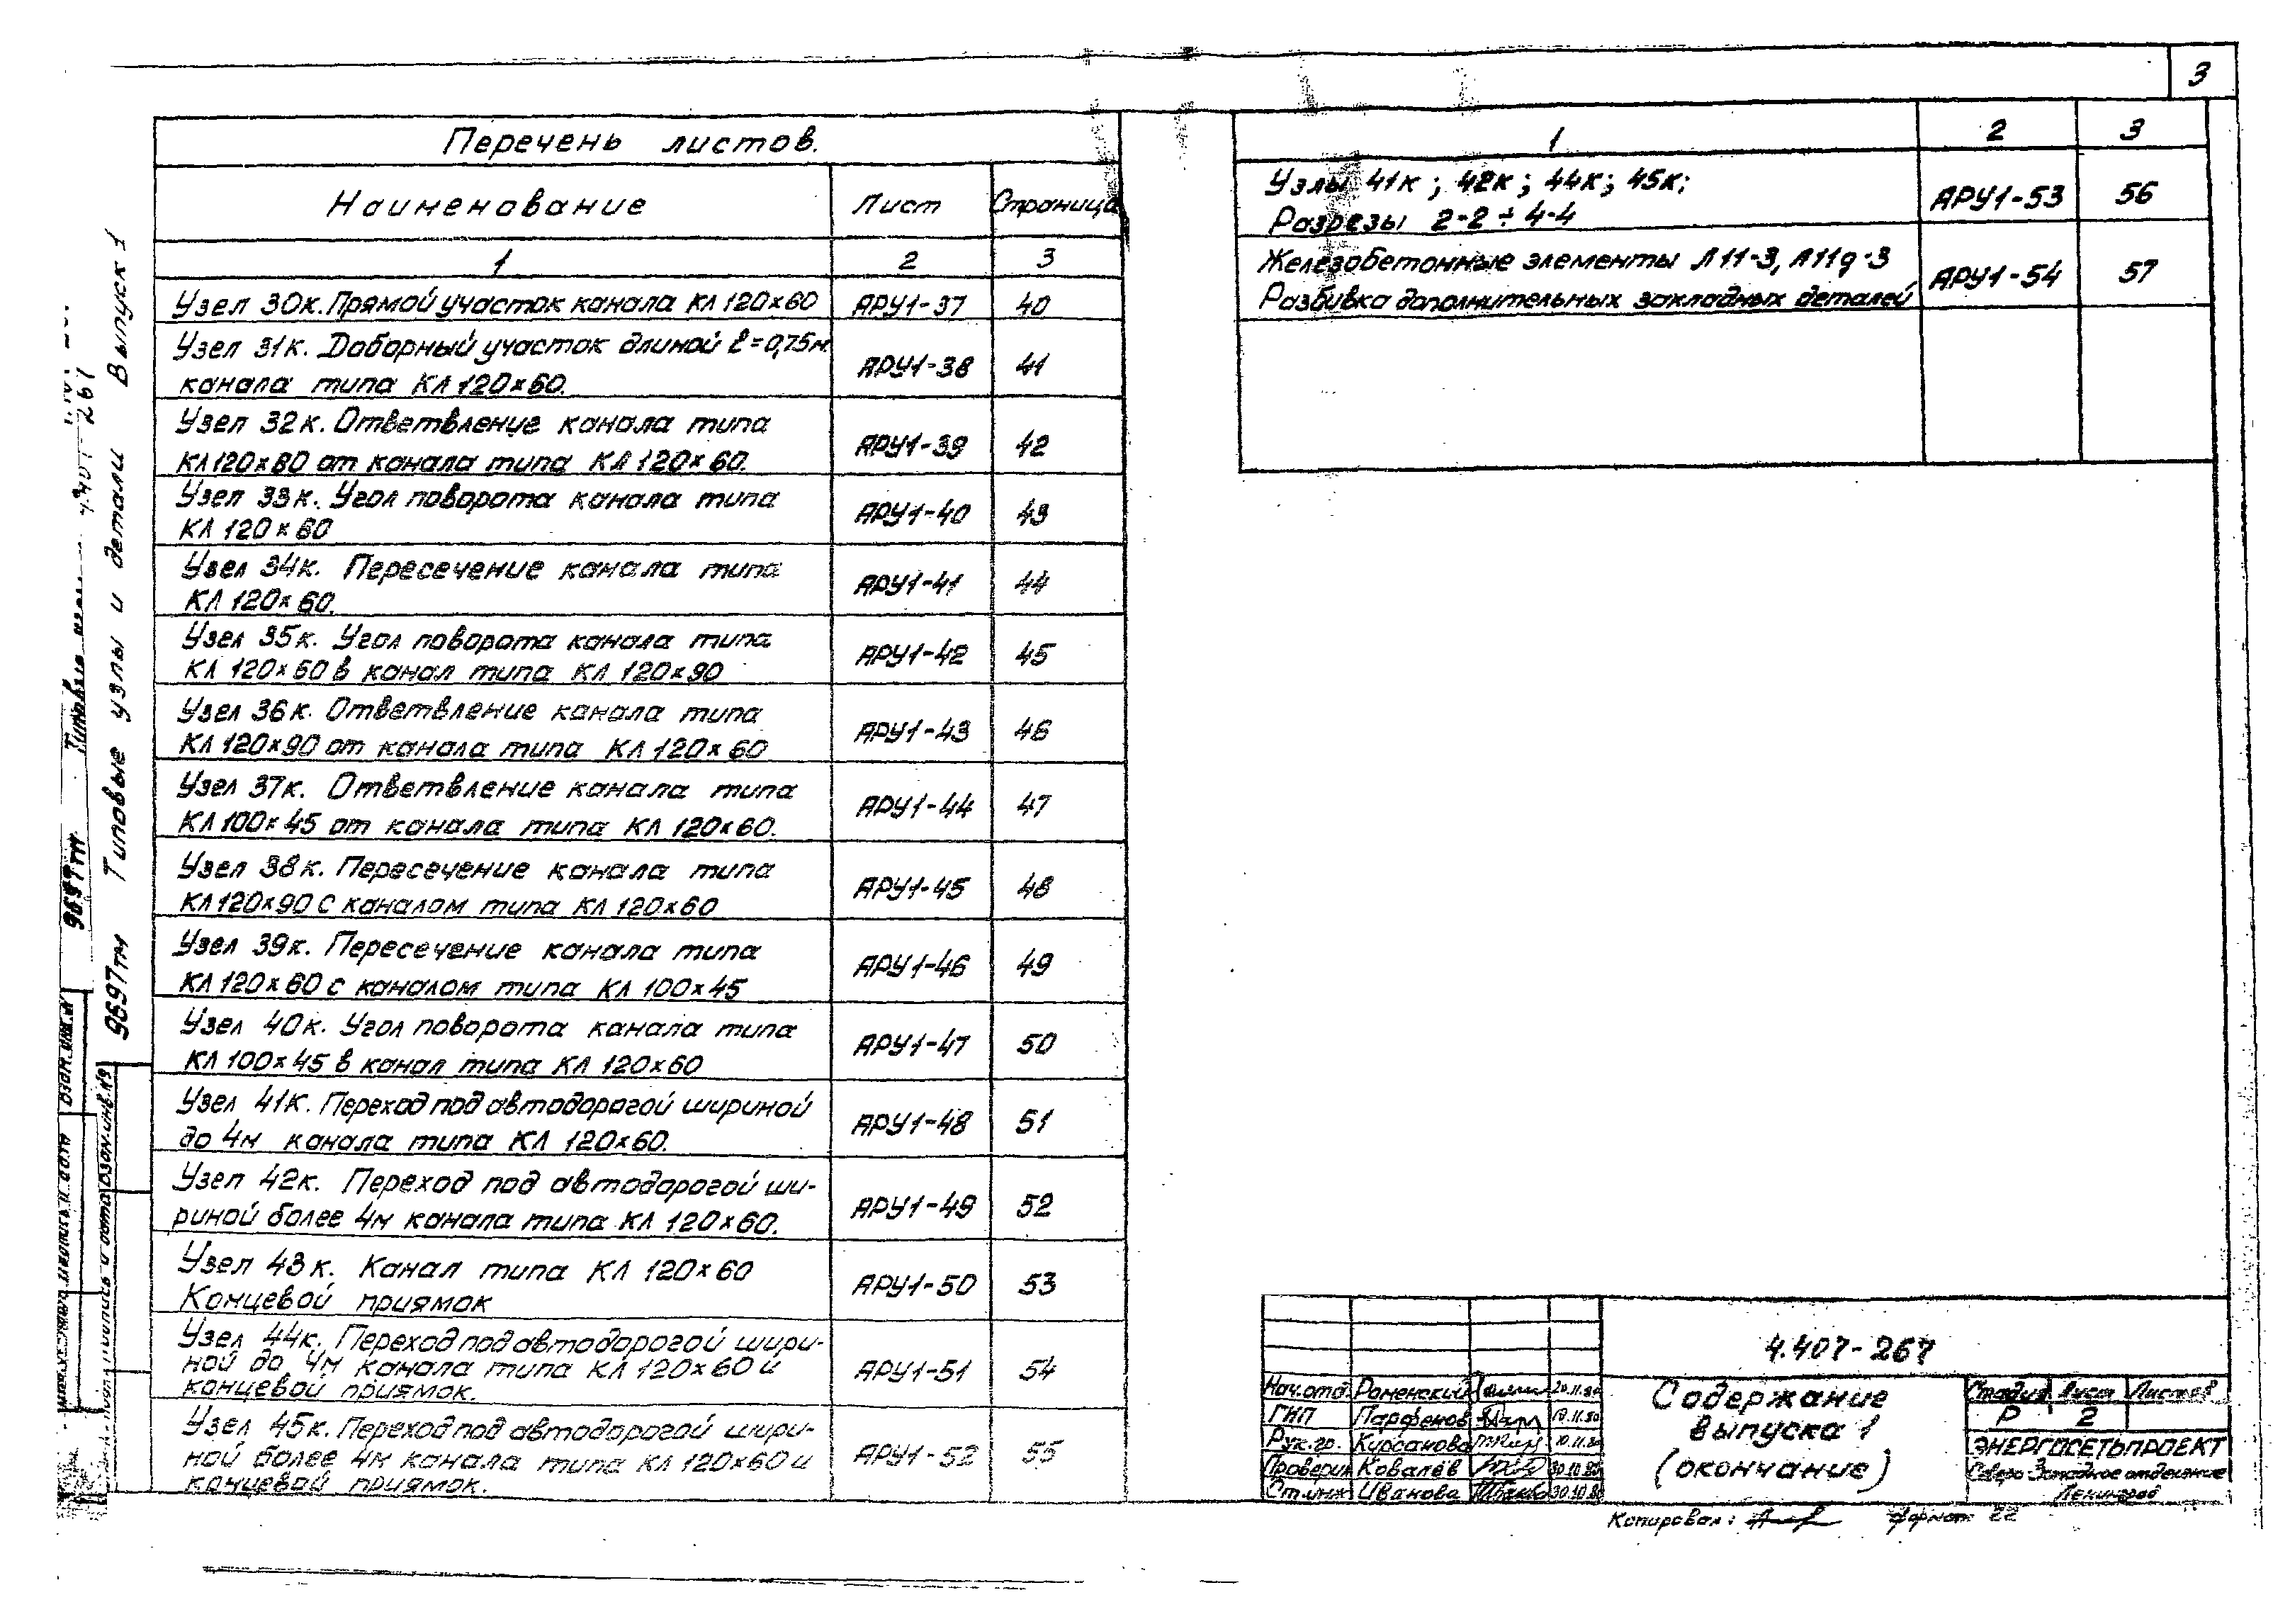 3
Перечень листов.
Наименование Лист Страница
1 2 3
Узел 30к. Прямой участок канала КЛ 120×60 АРУ1-37 40
Узел 31к. Доборный участок длиной ℓ=0,75м
канала типа КЛ 120×60. АРУ1-38 41
Узел 32к. Ответвление канала типа
КЛ120×80 от канала типа КЛ 120×60. АРУ1-39 42
Узел 33к. Угол поворота канала типа
КЛ 120×60 АРУ1-40 43
Узел 34к. Пересечение канала типа
КЛ 120×60. АРУ1-41 44
Узел 35к. Угол поворота канала типа
КЛ 120×60 в канал типа КЛ 120×90 АРУ1-42 45
Узел 36к. Ответвление канала типа
КЛ 120×90 от канала типа КЛ 120×60 АРУ1-43 46
Узел 37к. Ответвление канала типа
КЛ 100×45 от канала типа КЛ 120×60. АРУ1-44 47
Узел 38к. Пересечение канала типа
КЛ120×90 с каналом типа КЛ 120×60 АРУ1-45 48
Узел 39к. Пересечение канала типа
КЛ 120×60 с каналом типа КЛ 100×45 АРУ1-46 49
Узел 40к. Угол поворота канала типа
КЛ 100×45 в канал типа КЛ 120×60 АРУ1-47 50
Узел 41к. Переход под автодорогой шириной
до 4м канала типа КЛ 120×60. АРУ1-48 51
Узел 42к. Переход под автодорогой ши-
риной более 4м канала типа КЛ 120×60. АРУ1-49 52
Узел 43к. Канал типа КЛ 120×60
Концевой приямок АРУ1-50 53
Узел 44к. Переход под автодорогой шири-
ной до 4м канала типа КЛ 120×60 и
концевой приямок. АРУ1-51 54
Узел 45к. Переход под автодорогой шири-
ной более 4м канала типа КЛ 120×60 и
концевой приямок. АРУ1-52 55
1 2 3
Узлы 41к; 42к; 44к; 45к;
Разрезы 2-2 ÷ 4-4 АРУ1-53 56
Железобетонные элементы Л11-3, Л11д-3
Разбивка дополнительных закладных деталей АРУ1-54 57
9697тм Типовые узлы и детали Выпуск 1
9697тм
взам.инв.№
4.407-267
Нач.отд. Роменский
ГИП Парфенов
Рук.гр. Курсанова
Проверил Ковалёв 30.10.80
Ст.инж. Иванова 30.10.80
Содержание
выпуска 1
(окончание)
Стадия Лист Листов
Р 2
ЭНЕРГОСЕТЬПРОЕКТ
Северо-Западное отделение
Ленинград
Копировал: формат 22